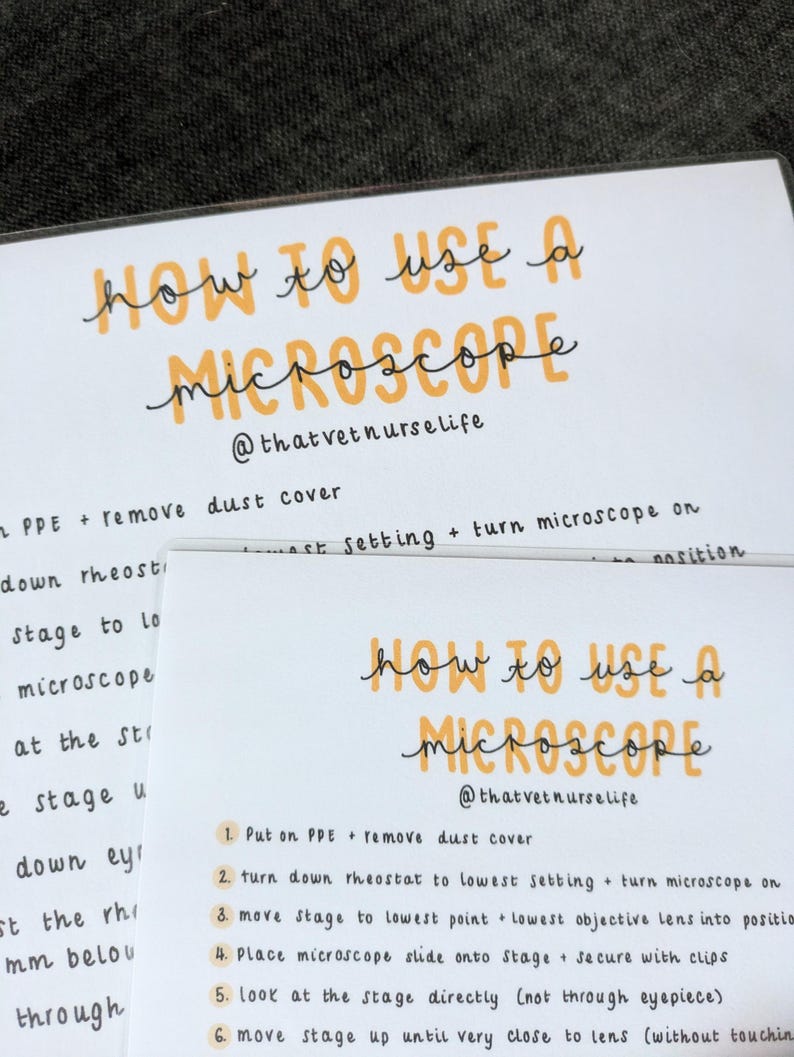 HOW TO USE A
how to use a
MICROSCOPE
microscope
@thatvetnurselife
PPE + remove dust cover
down rheost
lowest setting + turn microscope on
position
stage to lo
microscope
at the sta
stage u
down eye
the rh
mm below
through
HOW TO USE A
how to use a
MICROSCOPE
microscope
@thatvetnurselife
1. Put on PPE + remove dust cover
2. turn down rheostat to lowest setting + turn microscope on
3. move stage to lowest point + lowest objective lens into positio
4. Place microscope slide onto stage + secure with clips
5. look at the stage directly (not through eyepiece)
6. move stage up until very close to lens (without touchin